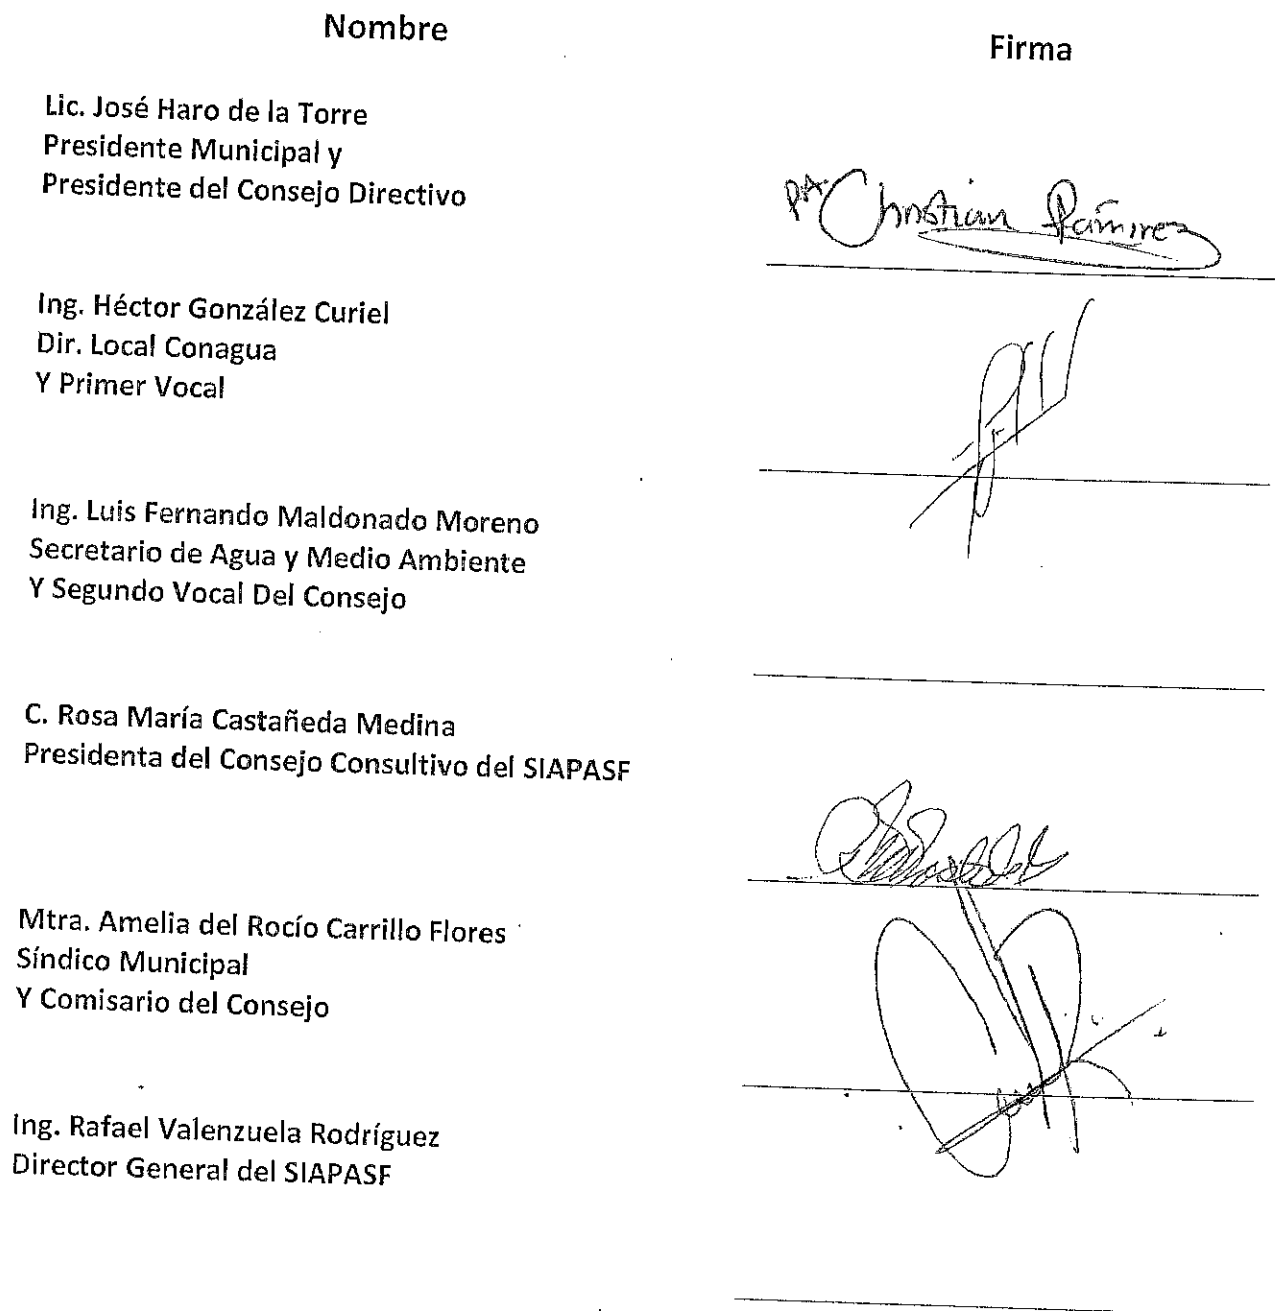 Nombre
Firma
Lic. José Haro de la Torre
Presidente Municipal y
Presidente del Consejo Directivo
PA. Christian Ramirez
Ing. Héctor González Curiel
Dir. Local Conagua
Y Primer Vocal
Ing. Luis Fernando Maldonado Moreno
Secretario de Agua y Medio Ambiente
Y Segundo Vocal Del Consejo
C. Rosa María Castañeda Medina
Presidenta del Consejo Consultivo del SIAPASF
Mtra. Amelia del Rocío Carrillo Flores
Síndico Municipal
Y Comisario del Consejo
Ing. Rafael Valenzuela Rodríguez
Director General del SIAPASF